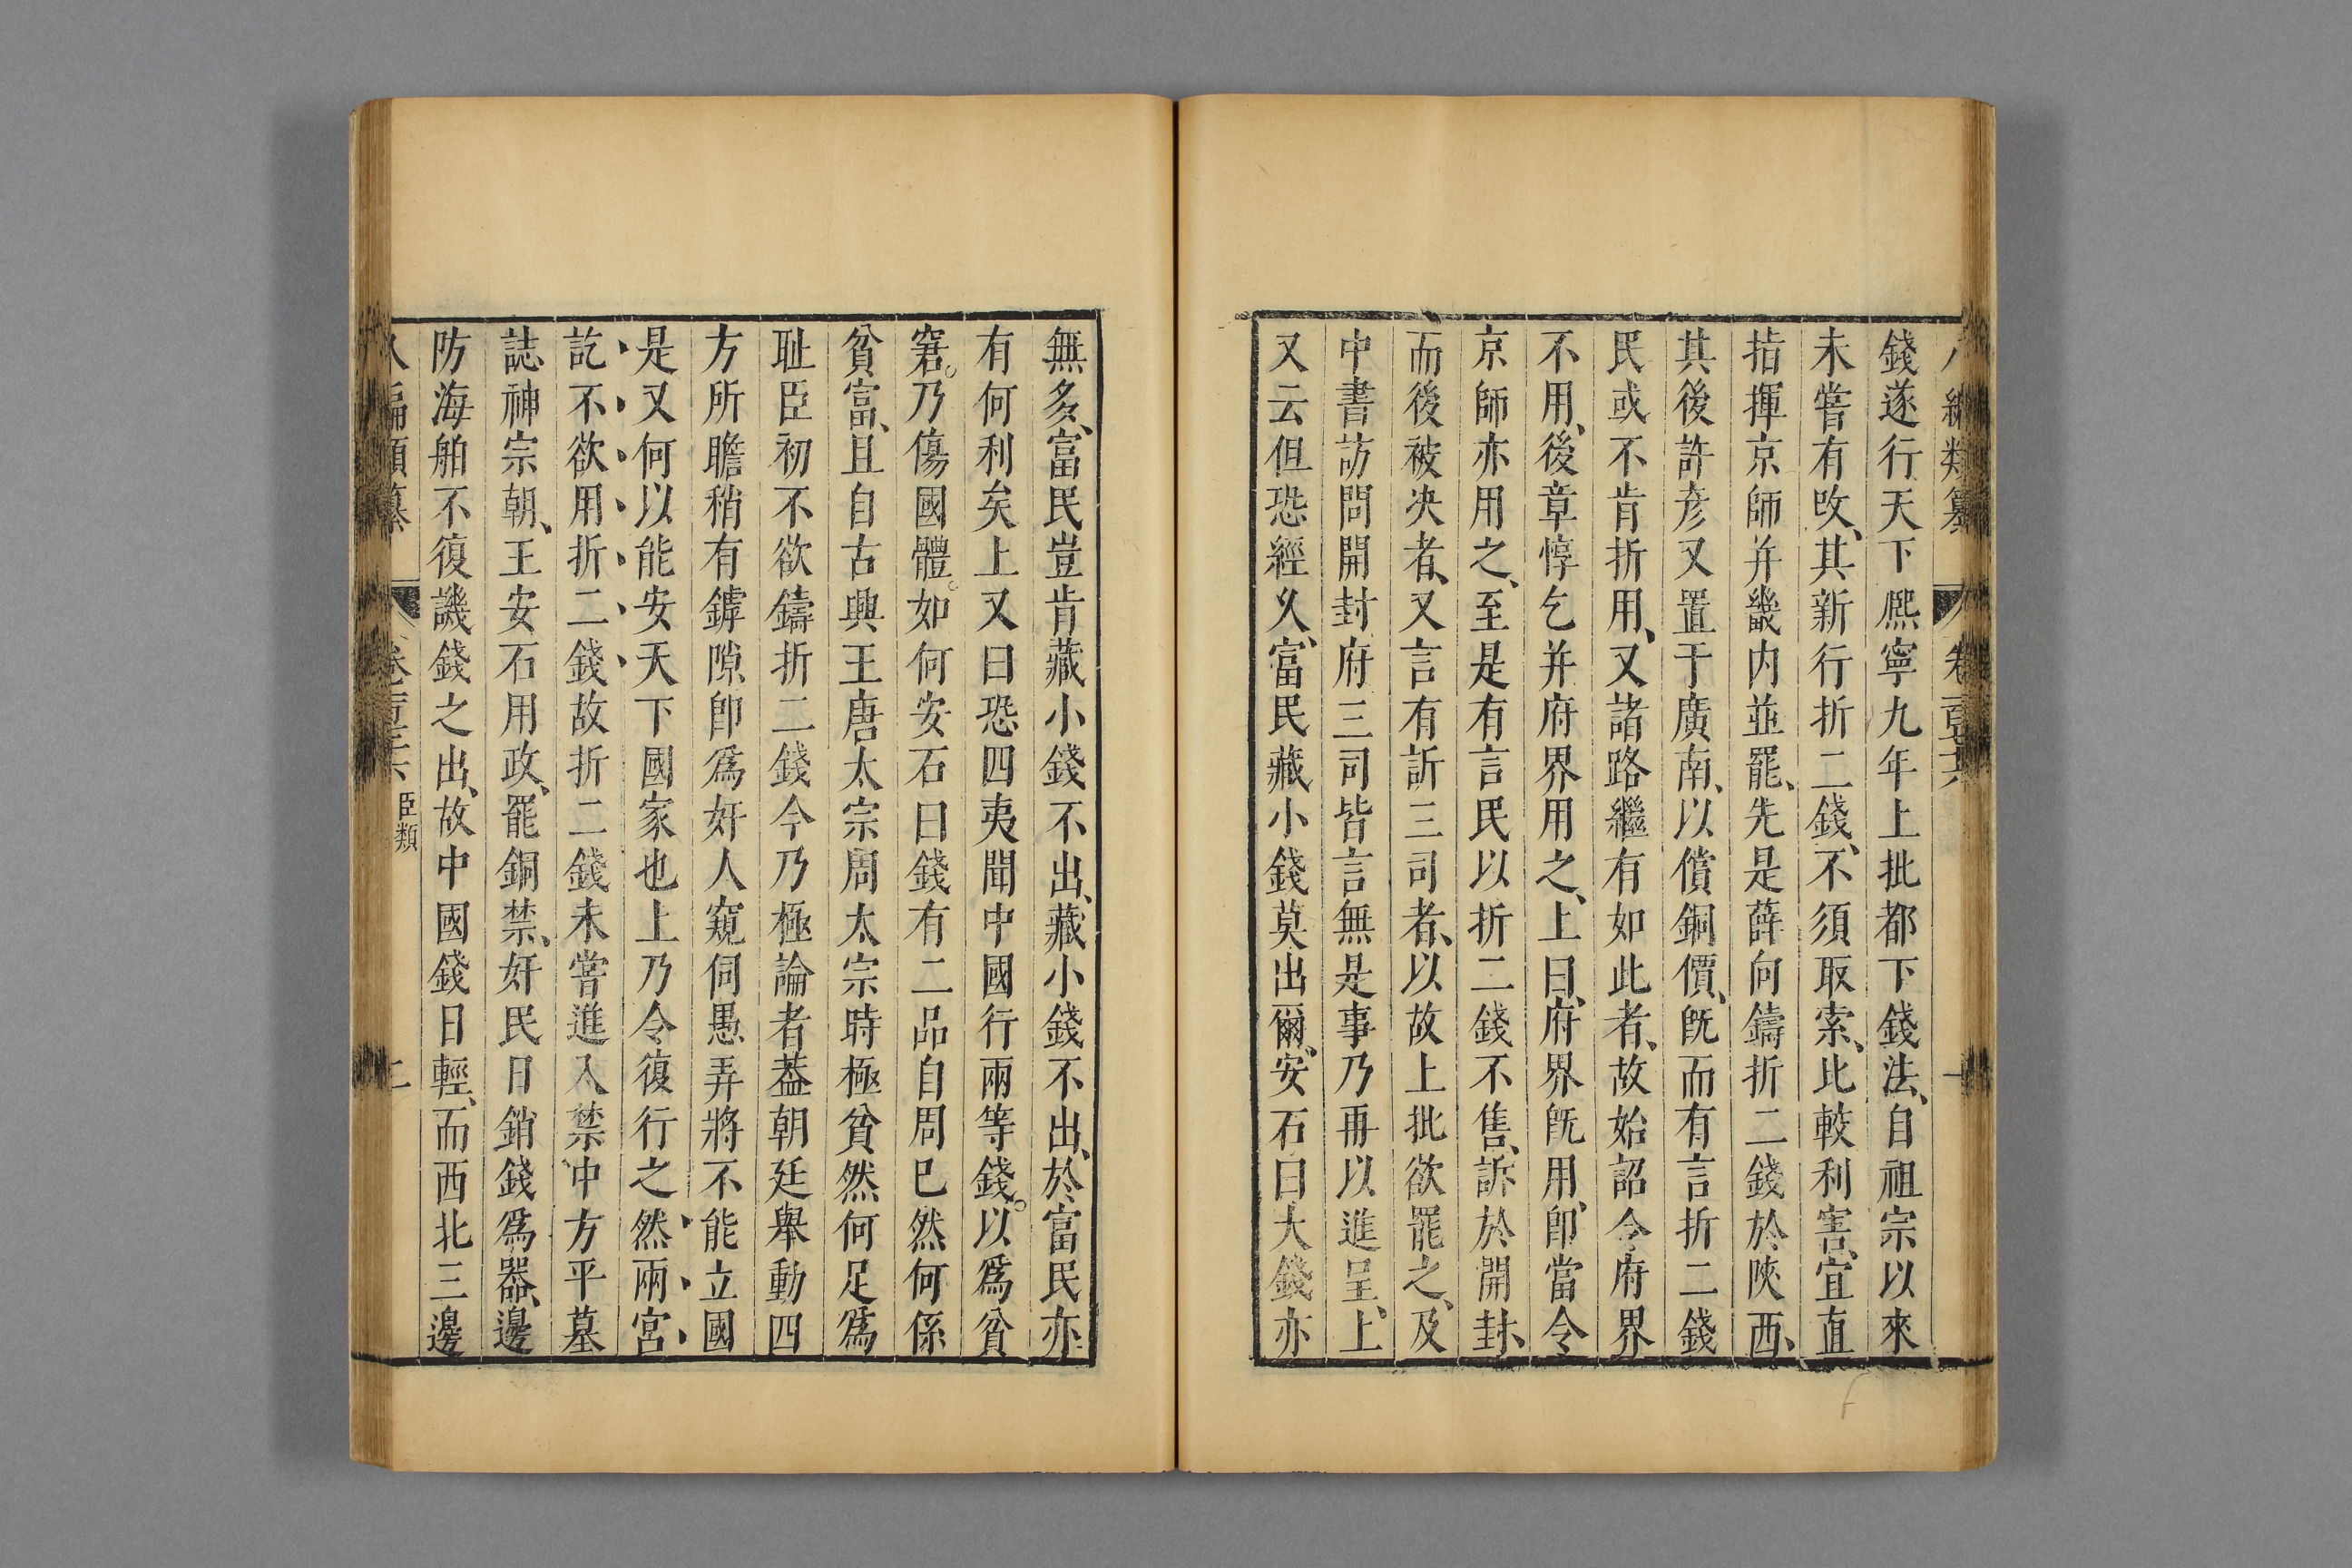 編類纂 卷百 一
錢遂行天下熈寧九年上批都下錢法、自祖宗以來
未嘗有改、其新行折二錢、不須取索、比較利害、宜直
指揮京師并畿内並罷、先是薛向鑄折二錢於陝西、
其後許彦又置于廣南、以償銅價、旣而有言折二錢
民或不肯折用、又諸路繼有如此者、故始詔令府界
不用、後章惇乞并府界用之、上曰、府界旣用、卽當令
京師亦用之、至是有言民以折二錢不售、訴於開封、
而後被决者、又言有訢三司者、以故上批欲罷之、及
中書訪問開封府三司皆言無是事乃再以進呈、上
又云但恐經久、富民藏小錢莫出爾、安石曰大錢亦
無多、富民豈肯藏小錢不出、藏小錢不出、於富民亦
有何利矣上又曰恐四夷聞中國行兩等錢。以爲貧
窘。乃傷國體。如何安石曰錢有二品自周已然何係
貧富、且自古興王唐太宗周太宗時極貧然何足爲
耻臣初不欲鑄折二錢今乃極論者葢朝廷舉動四
方所瞻稍有罅隙卽爲奸人窺伺愚弄將不能立國
是又何以能安天下國家也上乃令復行之然兩宮
訖不欲用折二錢故折二錢未嘗進入禁中方平墓
誌神宗朝、王安石用政、罷銅禁、奸民日銷錢爲器、邊
防海舶不復譏錢之出、故中國錢日輕、而西北三邊
編類纂 卷 臣類 二